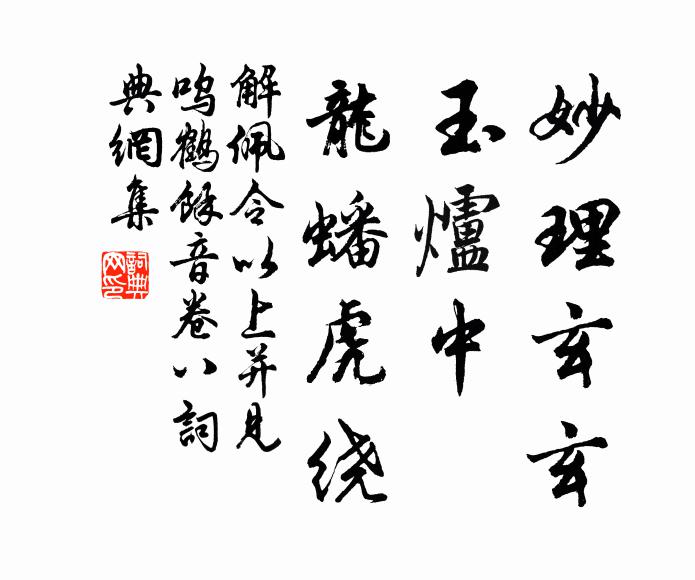 妙理玄玄
玉爐中
龍蟠虎绕
解佩令以上并见
鸣鶴餘音卷八詞
典網集
詞典网印